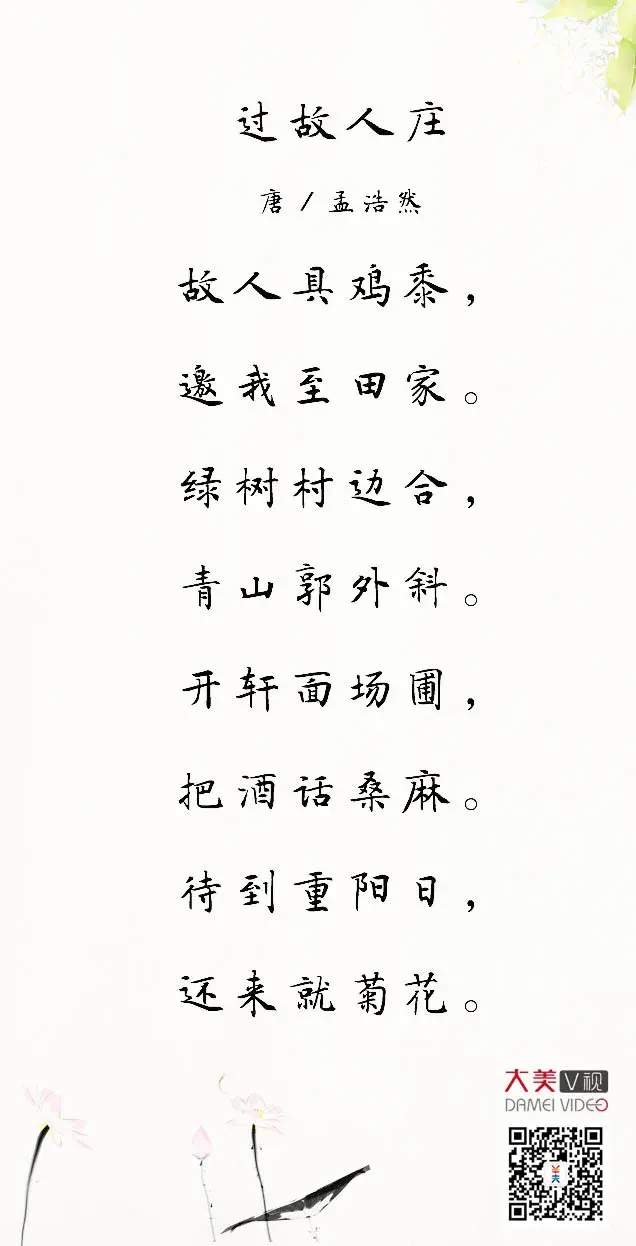 过故人庄
唐/孟浩然
故人具鸡黍，
邀我至田家。
绿树村边合，
青山郭外斜。
开轩面场圃，
把酒话桑麻。
待到重阳日，
还来就菊花。
大美V视
DAMEI VIDEO